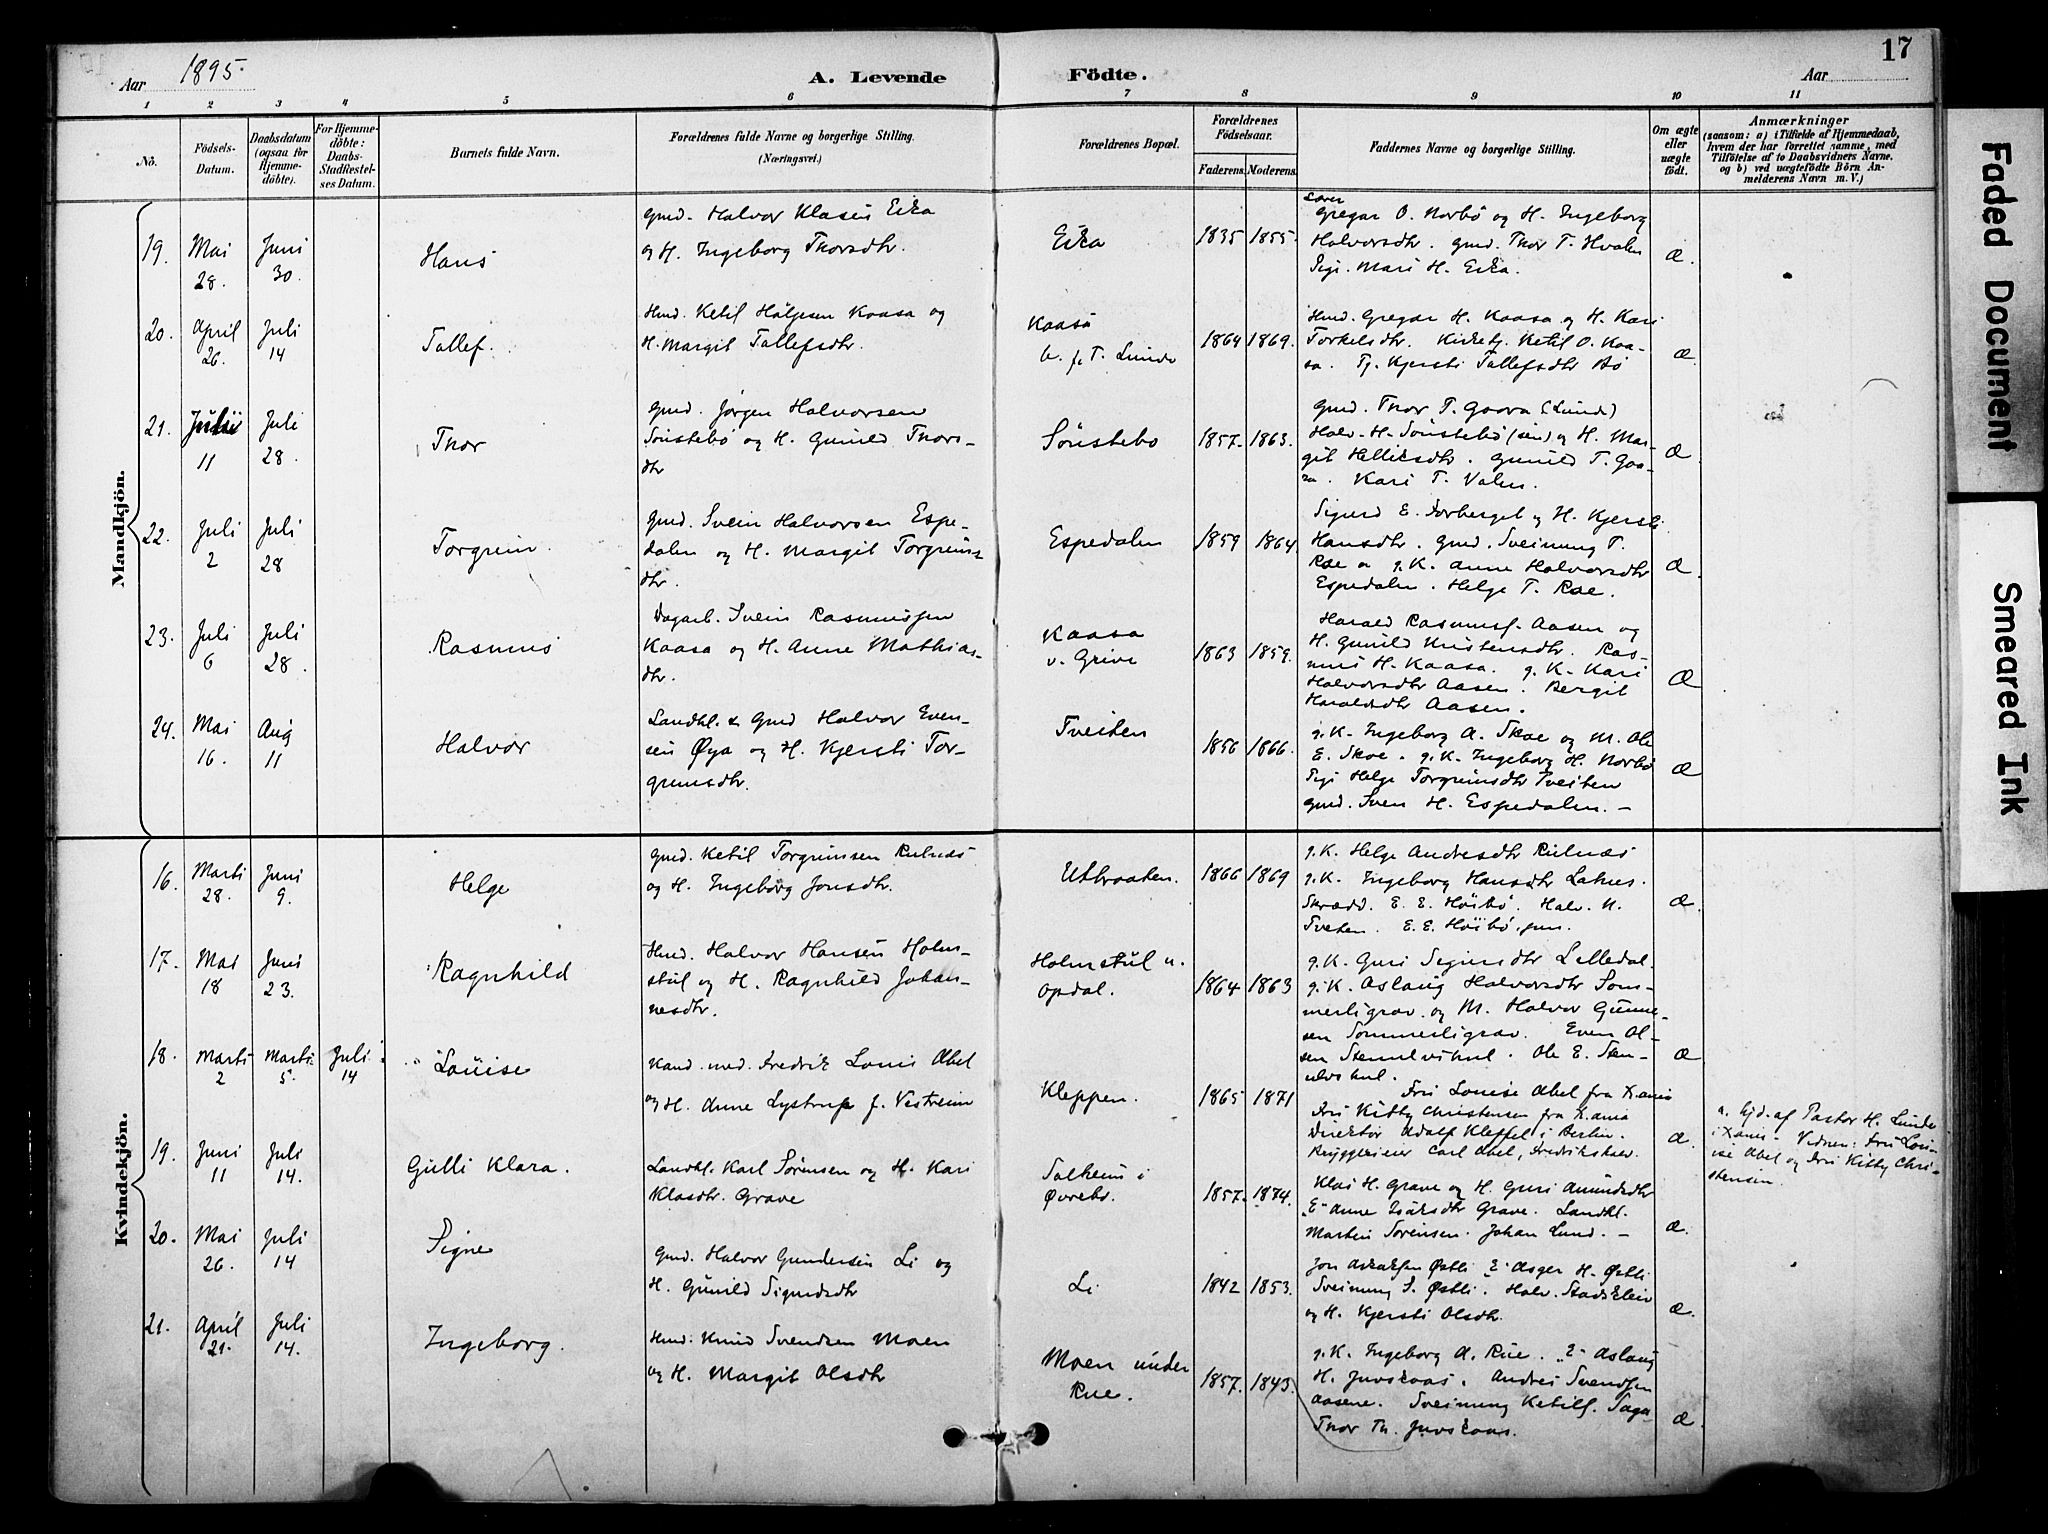 17
Aar 1895.
A. Levende Födte.
Aar
1 2 3 4 5 6 7 8 9 10 11
Nô.
Födsels-Datum.
Daabsdatum (ogsaa for Hjemme-döbte).
For Hjemme-döbte: Daabs-Stadfæstel-ses Datum.
Barnets fulde Navn.
Forældrenes fulde Navne og borgerlige Stilling. (Næringsvei.)
Forældrenes Bopæl.
Forældrenes Födselsaar.
Faderens. Moderens.
Faddernes Navne og borgerlige Stilling.
Om ægte eller uægte födt.
Anmærkninger
(saasom: a) i Tilfælde af Hjemmedaab, hvem der har forrettet samme, med Tilföielse af to Daabsvidners Navne, og b) ved uægtefödte Börn An-melderens Navn m. V.)
Mandkjön.
19. Mai 28. Juni 30. Hans
Gmd. Halvor Klasen Eika
og H. Ingeborg Thorsdtr.
Eika 1835 1855.
Gregar O. Norbö og H. Ingeborg
Halvorsdtr. Gmd. Thor T. Hvalen
Pige Mari H. Eika.
Æ.
20. April 26. Juli 14 Tallef.
Hmd. Ketil Höljesen Kaasa og
H. Margit Tallefsdtr.
Kaasa
u. f. T. Lunde
1864 1869.
Hmd. Gregar H. Kaasa og H. Kari
Torkelsdtr. Kirketj. Ketil O. Kaa-
sa. Tj. Kjersti Tallefsdtr Bö
Æ
21. Juli 11 Juli 28. Thor
Gmd. Jörgen Halvorsen
Sönstebö og H. Gunild Thors-
dtr
Sönstebö 1857. 1863.
Gmd. Thor T. Gaara (Lunde)
Halv. H. Sönstebö (sen) og H. Mar-
git Helliksdtr. Gunild T. Gaa-
ra. Kari T. Valen.
Æ
22. Juli 2 Juli 28 Torgrim.
Gmd. Svein Halvorsen Espe-
dalen og H. Margit Torgrims-
dtr.
Espedalen 1859 1864
Sigurd E. Forberget og H. Kjersti
Hansdtr. Gmd. Sveinung T.
Rae g. K. Anne Halvorsdtr
Espedalen. Helge T. Rae.
Æ.
23. Juli 6 Juli 28. Rasmus
Dagarb. Svein Rasmussen
Kaasa og H. Anne Mathias-
dtr.
Kaasa
u. Grive
1863 1859.
Harald Rasmusf. Aasen og
H. Gunild Kristensdtr. Ras-
mus H. Kaasa. g. K. Kari
Halvorsdtr Aasen. Bergit
Haraldsdtr Aasen.
Æ
24. Mai 16. Aug 11 Halvor
Landhl. & Gmd Halvor Even-
sen Øya og H. Kjersti Tor-
grimsdtr.
Tveiten 1856 1866.
g. K. Ingeborg A. Skoe og M. Ole
E. Skoe. g. K. Ingeborg H. Norbö
Pige Helge Torgrimsdtr Tveiten
Gmd. Sven H. Espedalen. —
Æ
Kvindekjön.
16. Marts 28. Juni 9. Helge
Gmd. Ketil Torgrimsen Rulnæs
og H. Ingeborg Jonsdtr.
Utbraaten. 1866 1869
g. K. Helge Andresdtr Rulnæs
g. K. Ingeborg Hansdtr Laknes.
Skrædd. E. E. Höibö. Halv. N.
Tveten. E. E. Höibö, jun.
Æ.
17. Mai 18 Juni 23. Ragnhild
Hmd. Halvor Hansen Holm-
stul og H. Ragnhild Johan-
nesdtr.
Holmstul u.
Opdal.
1864 1863
g. K. Guri Sigurdsdtr Lilledal.
g. K. Aslaug Halvorsdtr Som-
merligrav og M. Halvor Gunne-
sen Sommerligrav. Even Ol-
sen Stenulvskul. Ole E. Sten-
ulvskul.
Æ
18. Marts 2 Marts 5. Juli 14 Louise
Kand. med. Fredrik Louis Abel
og H. Anne Lystrup f. Vestreim
Kleppen. 1865 1871
Frk Louise Abel fra Xania
Frk Kitty Christensen fra Xania
Direktör Adolf Kleffel i Berlin.
Bryggerieier Carl Abel, Fredrikshald.
Æ.
a. hjd. af Pastor H. Lunde
i Xania. Vidner: Frk Lou-
ise Abel og Frk Kitty Chri-
stensen.
19. Juni 11 Juli 14. Gulli Klara.
Landhl. Karl Sörensen og H. Kari
Klasdtr. Grave
Solheim i
Øvrebö.
1857. 1874.
Klas H. Grave og H. Guri Amundsdtr
"E" Anne Isaksdtr Grave. Landhl.
Martin Sörensen. Johan Lund. —
Æ.
20. Mai 26. Juli 14 Signe
Gmd. Halvor Gundersen Li og
H. Gunild Sigurdsdtr
Li 1842 1853.
Jon Aslaksen Østli "E" Asger H. Østli
Sveinung S. Østli. Halv. Stadskleiv
og H. Kjersti Olsdtr.
Æ.
21. April 21. Juli 14. Ingeborg.
Hmd. Knud Svendsen Moen
og H. Margit Olsdtr
Moen under
Rue.
1857. 1843.
g. K. Ingeborg A. Rue. "E" Aslaug
H. Juvskaas. Andres Svendsen
Aasene. Sveinung Ketilf. Saga
Thor Th. Juvskaas.
Æ
Faded Document
Smeared Ink